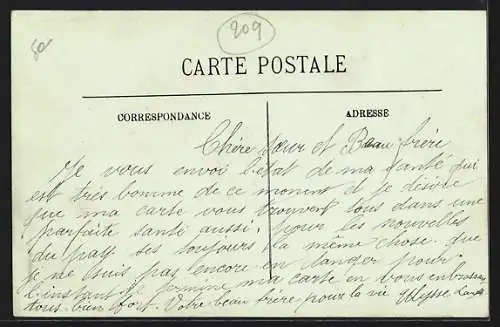 80
209
CARTE POSTALE
CORRESPONDANCE
ADRESSE
Chère sœur et Beau frère
Je vous envoi l'etat de ma santé qui
est très bonne de ce moment et je désire
que ma carte vous trouvent tous dans une
parfaite santé aussi. pour les nouvelles
du pays ses toujours la même chose. que
je ne suis pas encore en danger pour
l'instant Je termine ma carte en vous embrassant
tous bien fort. Votre beau frère pour la vie Ulysse